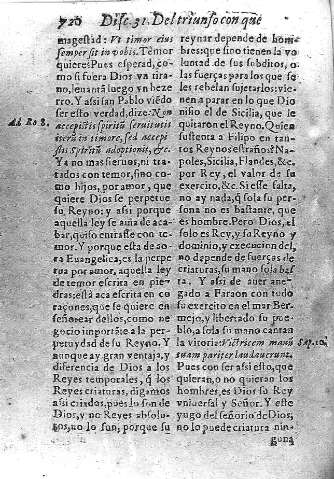 720 Disc. 31. Del triunfo con que
magestad: Ut timor eius
semper sit in vobis. Temor
quiere: Pues esperad, co-
mo si fuera Dios un tira
no, levantà luego un beze
rro. Y assi san Pablo viẽdo
ser esto verdad, dize: Non
accepistis spiritũ seruitutis
iterũ in timore, sed accepi-
stis Spiritũ adoptionis, &c.
Ad Ro 8.
Ya no mas sieruos, ni tra-
tados con temor, sino co-
mo hijos, por amor, que
quiere Dios se perpetue
su Reyno; y assi porque
aquella ley se auia de aca-
bar, quiso entrasse con te-
mor. Y porque esta de ao-
ra Euangelica, es la perpe
tua por amor, aquella ley
de temor escrita en pie-
dras; està aca escrita en co
raçones, que se quiere en
señorear dellos, como ne-
gocio importãte a la per-
petuydad de su Reyno. Y
aunque ay gran ventaja, y
diferencia de Dios a los
Reyes temporales, q̃ los
Reyes criaturas, digamos
assi criados, pues lo son de
Dios, y no Reyes absolu-
tos, no lo son, porque su
reynar depende de hom-
bres: que sino tienen la vo
luntad de sus subditos, o
las fuerças para los que se
les rebelan sujetarlos: vie-
nen a parar en lo que Dio
nisio el de Sicilia, que le
quitaron el Reyno. Quien
sustenta a Filipo en tan-
tos Reynos estraños? Na-
poles, Sicilia, Flandes, &c.
por Rey, el valor de su
exercito, &c. Si esse falta,
no ay nada, q̃ sola su per-
sona no es bastante, que
es hombre. Pero Dios, el
solo es Rey, y su Reyno y
dominio, y execucion del,
no depende de fuerças de
criaturas, su mano sola bas
ta. Y assi de auer ane-
gado a Faraon con todo
su exercito en el mar Ber-
mejo, y libertado su pue-
blo, a sola su mano cantan
la vitoria: Victricem manũ
suam pariter laudauerunt.
Pues con ser assi esto, que
quieran, o no quieran los
hombres, es Dios su Rey
vniuersal y Señor. Y este
yugo del señorio de Dios,
no lo puede criatura nin-
guna